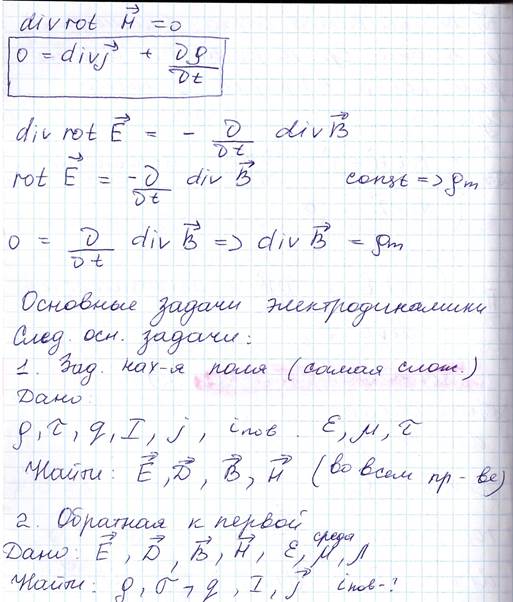 div rot H⃗ = 0
0 = div j⃗ + ∂ρ/∂t
div rot E⃗ = - ∂/∂t div B⃗
rot E⃗ = -∂/∂t div B⃗ const => ρm
0 = ∂/∂t div B⃗ => div B⃗ = ρm
Основные задачи электродинамики
След. осн. задачи:
1. Зад. нах-я поля (самая слож.)
Дано:
ρ, τ, q, I, j, iпов. ε, μ, τ
Найти: E⃗, D⃗, B⃗, H⃗ (во всем пр-ве)
2. Обратная к первой
Дано: E⃗, D⃗, B⃗, H⃗, ε, μ, λ среда
Найти: ρ, σ, q, I, j⃗ iпов-?